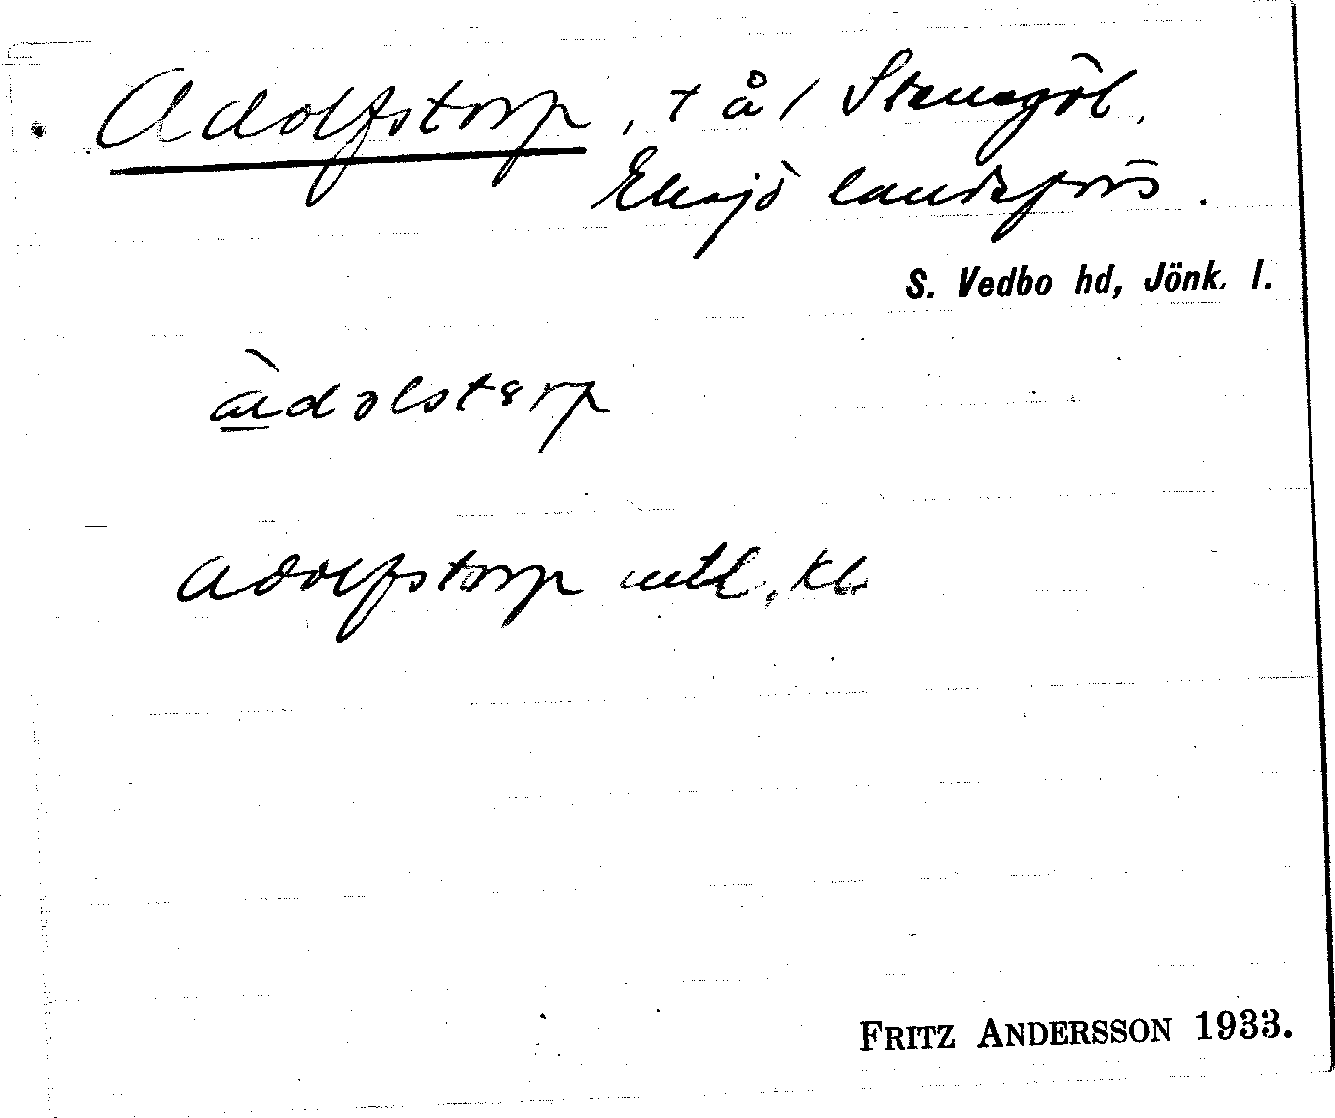 Adolfstorp, t å / Stensgöl,
Eksjö landsförs.
S. Vedbo hd, Jönk. l.
àdolstərp
Adolfstorp mtl, kb
FRITZ ANDERSSON 1933.